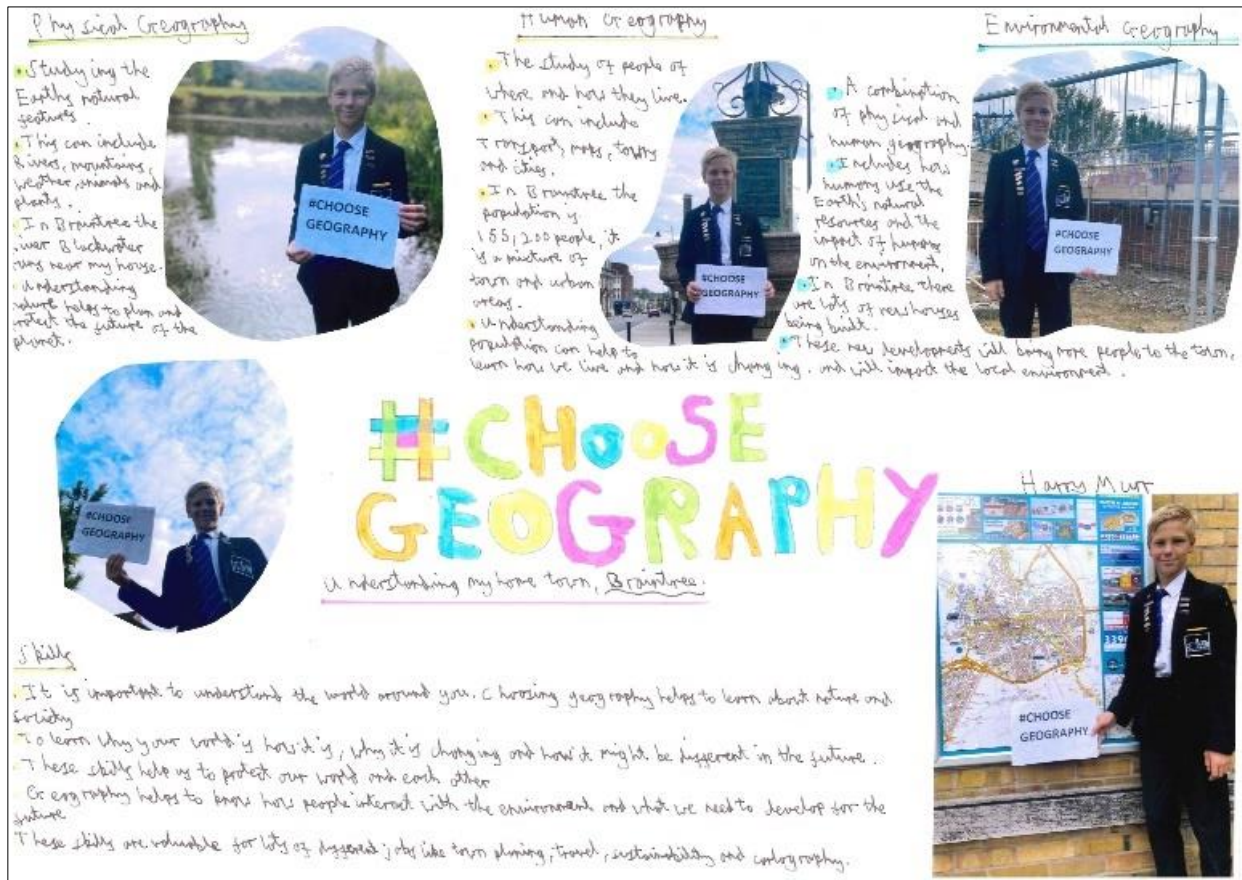 Physical Geography
• Studying the
Earths natural
features.
• This can include
Rivers, mountains,
weather, animals and
plants.
• In Braintree the
river Blackwater
runs near my house.
• Understanding
nature helps to plan and
protect the future of the
planet.
#CHOOSE
GEOGRAPHY
Human Geography
• The study of people of
where and how they live.
• This can include
Transport, maps, towns
and cities.
• In Braintree the
population is
155,200 people, it
is a mixture of
town and urban
areas.
• Understanding
population can help to
learn how we live and how it is changing.
#CHOOSE
GEOGRAPHY
Environmental Geography
• A combination
of physical and
human geography.
• Includes how
humans use the
Earth's natural
resources and the
impact of humans
on the environment.
• In Braintree there
are lots of new houses
being built.
• These new developments will bring more people to the town,
and will impact the local environment.
#CHOOSE
GEOGRAPHY
#CHOOSE
GEOGRAPHY
#CHOOSE
GEOGRAPHY
Understanding my home town, Braintree.
Harry Murr
#CHOOSE
GEOGRAPHY
Skills
• It is important to understand the world around you. Choosing geography helps to learn about nature and
society
• To learn why your world is how it is, why it is changing and how it might be different in the future.
• These skills help us to protect our world and each other
• Geography helps to know how people interact with the environment and what we need to develop for the
future
These skills are valuable for lots of different jobs like town planing, travel, sustainability and cartography.